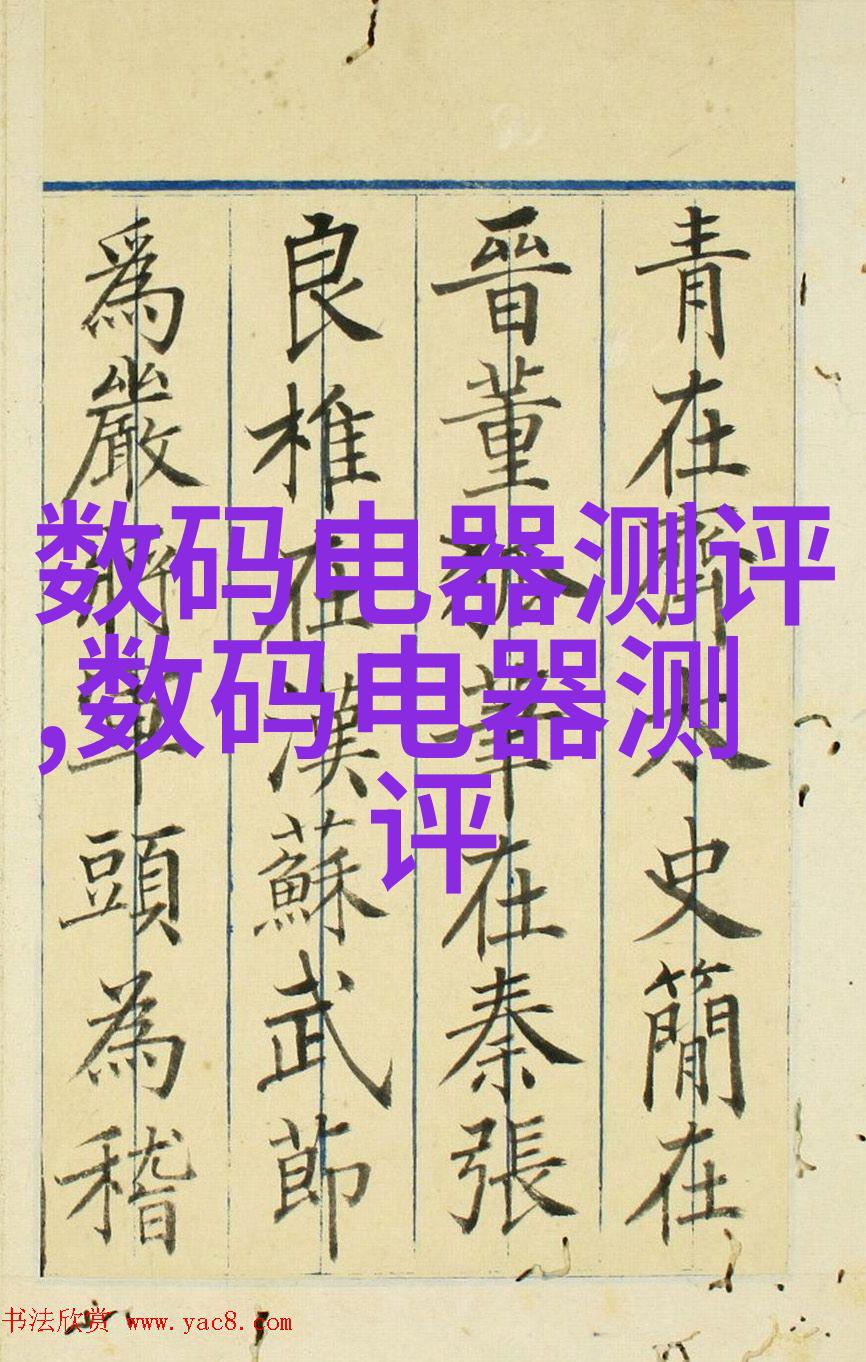 数码电器测评
,数码电器测
评
青在齊太史簡在
晉董狐筆在秦張
良椎在漢蘇武節
爲嚴將軍頭為稽
书法欣赏 www.yac8.com